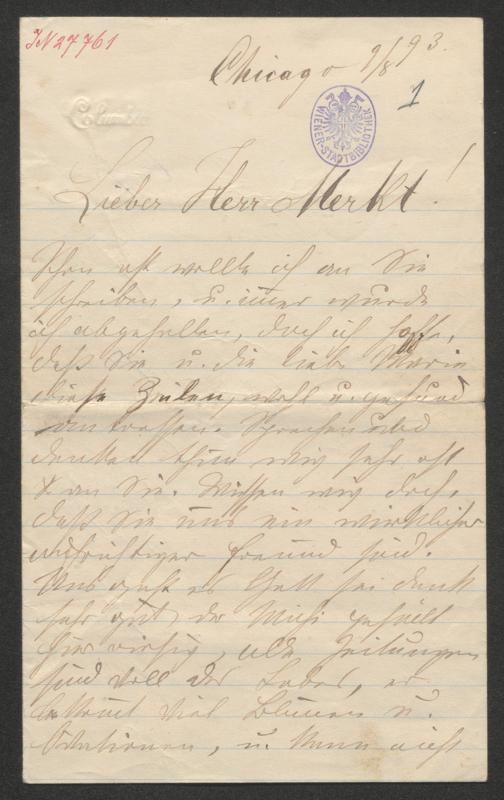 IN 27761
Chicago 9/8 93.
1
Columbia
WIENER-STADTBIBLIOTHEK
Lieber Herr Merkt!
Schon oft wollte ich an Sie
schreiben, u. im̄er wurde
ich abgehalten, doch ich hoffe,
daß Sie u. die liebe Marie
diese Zeilen, wohl u. gesund
antreffen. Sprechen und
denken thun wir sehr oft
an Sie. Wissen wir doch,
daß Sie uns ein wirklicher
aufrichtiger Freund sind.
Uns geht es Gott sei dank
sehr gut, der gefällt
hier riesig, alle Zeitungen
sind voll des Lobes, er
bekom̄t viel Blumen u.
Ovationen, u. kann nicht